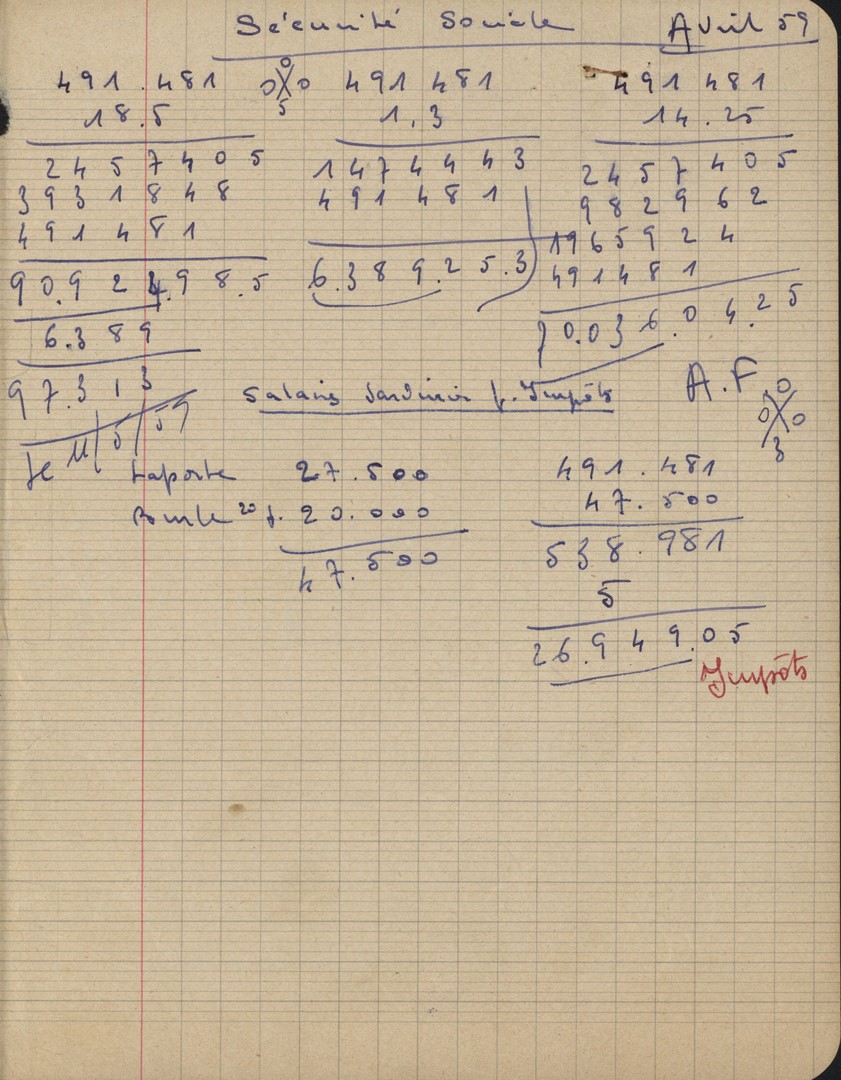 Sécurité Sociale Avril 59
491.481
18.5
2457405
3931848
491481
90.924.98.5
6.389
97.313
Le 11/5/59
0 0 0 5
491 481
1,3
1474443
491481
6.389.25.3
491 481
14.25
2457405
982962
1965924
491481
70.036.04.25
A.F
0 0 0 3
Salaires Jardiniers p. Impôts
Laporte 27.500
20 j. 20.000
47.500
491.481
47.500
538.981
5
26.949.05
Impôts